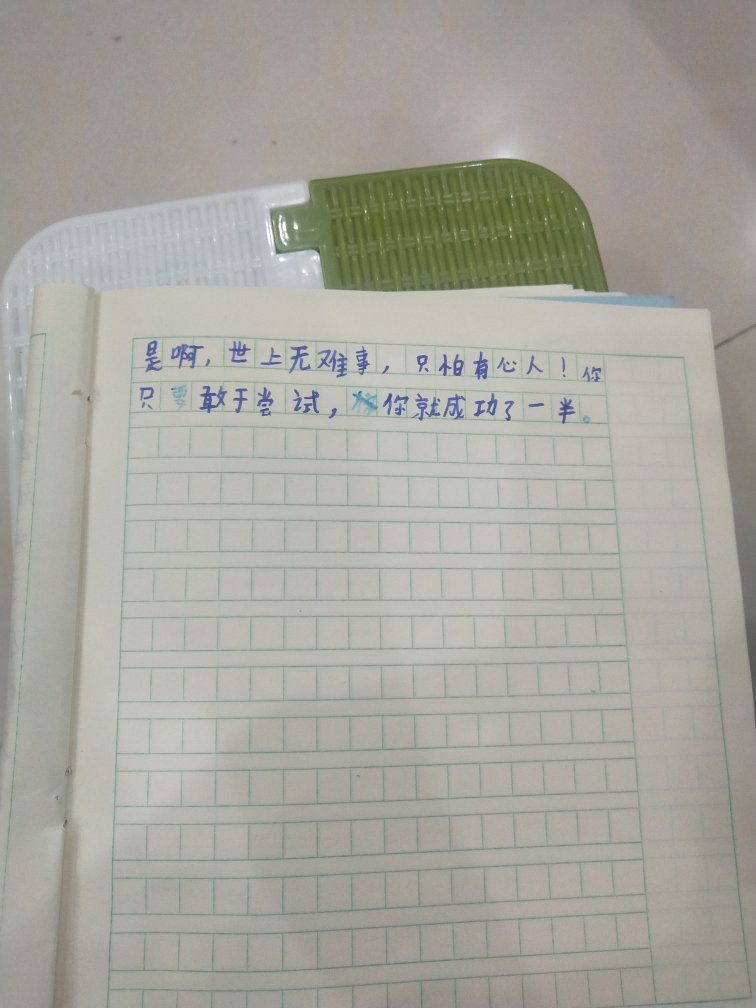 是啊，世上无难事，只怕有心人！你
只要敢于尝试，你就成功了一半。